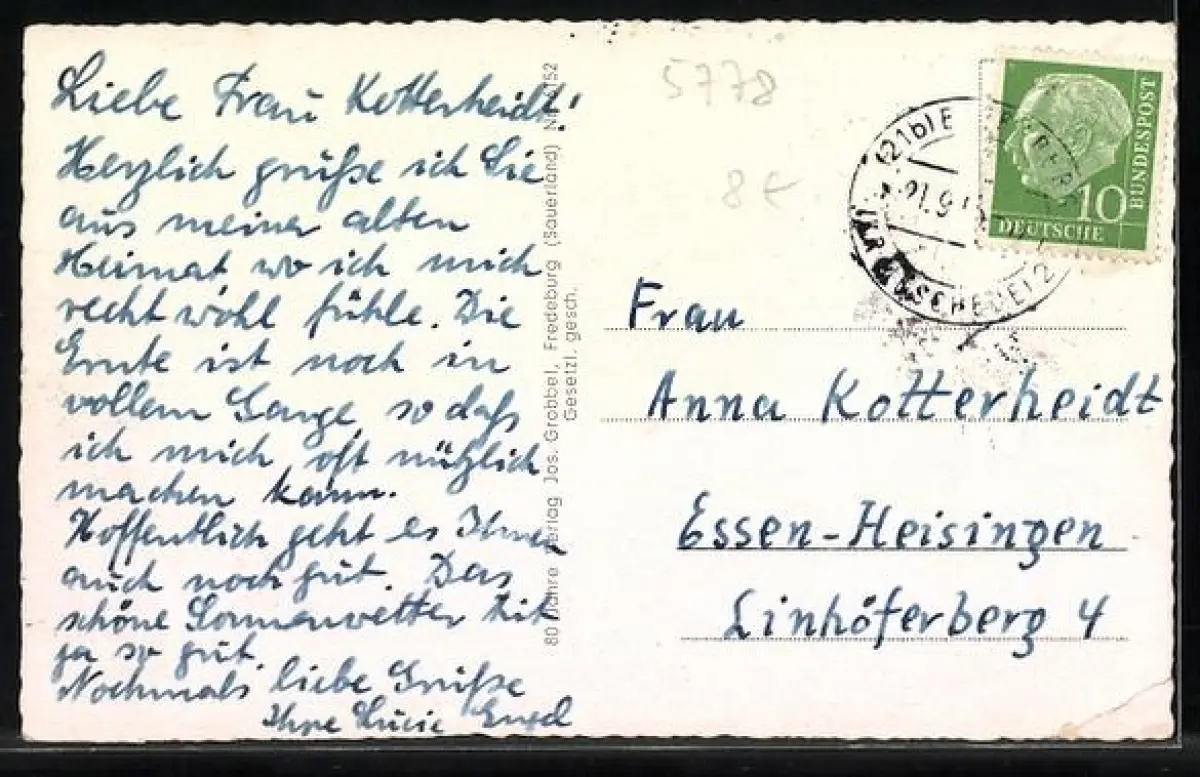 Liebe Frau Kotterheidt!
Herzlich grüße ich Sie
aus meiner alten
Heimat wo ich mich
recht wohl fühle. Die
Ernte ist noch in
vollem Gange, so daß
ich mich oft nützlich
machen kann.
Hoffentlich geht es Ihnen
auch noch gut. Das
schöne Sonnenwetter tut
ja so gut.
Nochmals liebe Grüße
Ihre Lucie Engel
80 Jahre Verlag Jos. Grobbel, Fredeburg (Sauerland)
Gesetzl. gesch.
5778
8 €
(21b)
21.9.
BUNDESPOST
10
DEUTSCHE
Frau
Anna Kotterheidt
Essen-Heisingen
Linhöferberg 4